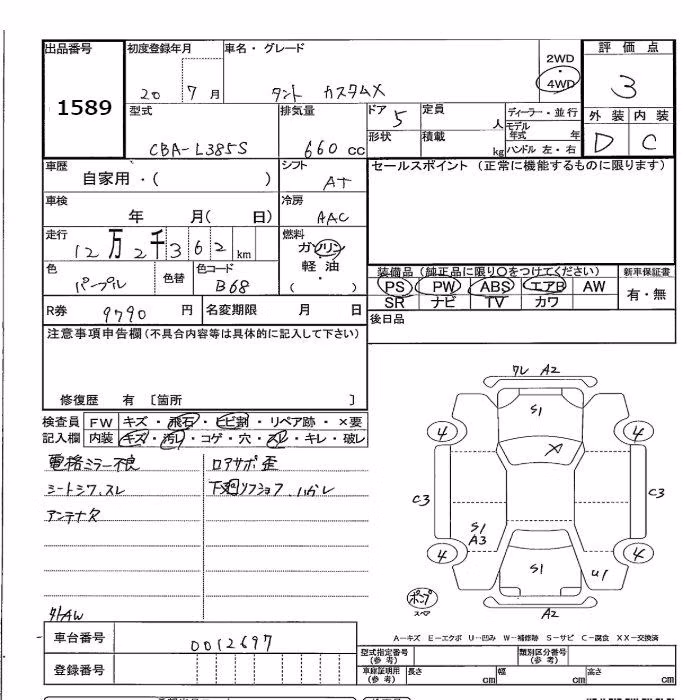 出品番号 1589
初度登録年月 20 7 月
車名・グレード タント カスタムX
2WD ・ 4WD
評価点 3
外装 D 内装 C
型式 CBA-L385S
排気量 660 cc
ドア 5
形状
定員 人
積載 kg
ディーラー・並行
モデル年式 年
ハンドル 左・右
車歴 自家用・( )
シフト AT
セールスポイント (正常に機能するものに限ります)
車検 年 月( 日)
冷房 AAC
走行 12万2千362 km
燃料 ガソリン・軽油・( )
色 パープル
色替
色コード B68
装備品 (純正品に限り○をつけてください)
PS PW ABS エアB AW
SR ナビ TV カワ
新車保証書 有・無
R券 9790 円
名変期限 月 日
後日品
注意事項申告欄(不具合内容等は具体的に記入して下さい)
修復歴 有 〔箇所 〕
検査員記入欄
FW キズ・飛石・ヒビ割・リペア跡・×要
内装 キズ・汚レ・コゲ・穴・スレ・キレ・破レ
電格ミラー不良
シートシワ、スレ
アンテナ欠
ロアサポ歪
下廻リ
ハガレ
社外AW
ワレ A2
S1
X
4 4
C3 C3
S1
A3
4 4
S1
U1
ポンプ
スペア
A2
A-キズ E-エクボ U-凹み W-補修跡 S-サビ C-腐食 XX-交換済
車台番号 0012697
登録番号
型式指定番号 (参考)
類別区分番号 (参考)
車庫証明用 (参考) 長さ cm 幅 cm 高さ cm